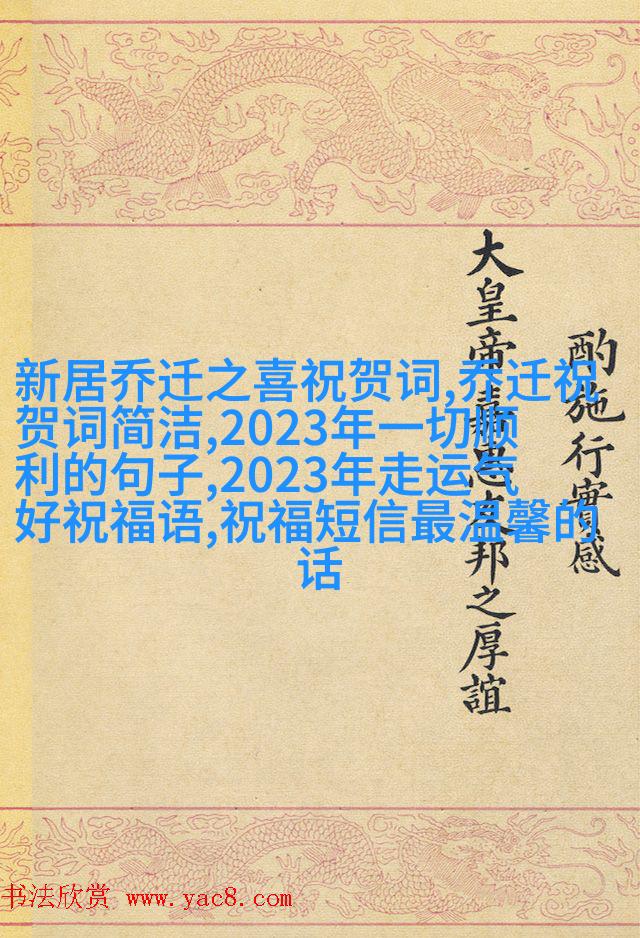 新居乔迁之喜祝贺词,乔迁祝
贺词简洁,2023年一切顺
利的句子,2023年走运气
好祝福语,祝福短信最温馨的
话
酌施行實感
大皇帝邦之厚誼
书法欣赏 www.yac8.com